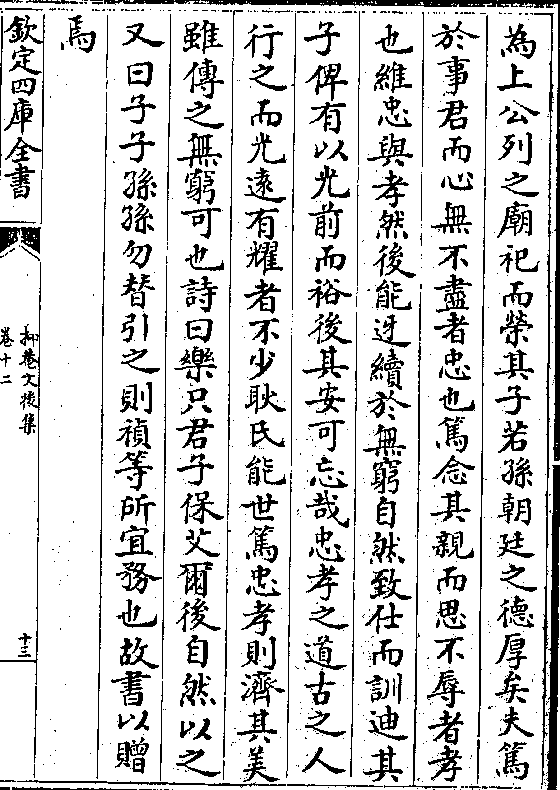 為上公列之廟祀而榮其子若孫朝廷之德厚矣夫篤
於事君而心無不盡者忠也篤念其親而思不辱者孝
也維忠與孝然後能迓續於無窮自然致仕而訓迪其
子俾有以光前而裕後其安可忘哉忠孝之道古之人
行之而光遠有耀者不少耿氏能世篤忠孝則濟其美
雖傳之無窮可也詩曰樂只君子保艾爾後自然以之
又曰子子孫孫勿替引之則禎等所宜務也故書以贈
焉
欽定四庫全書
抑菴文後集
卷十二
十三